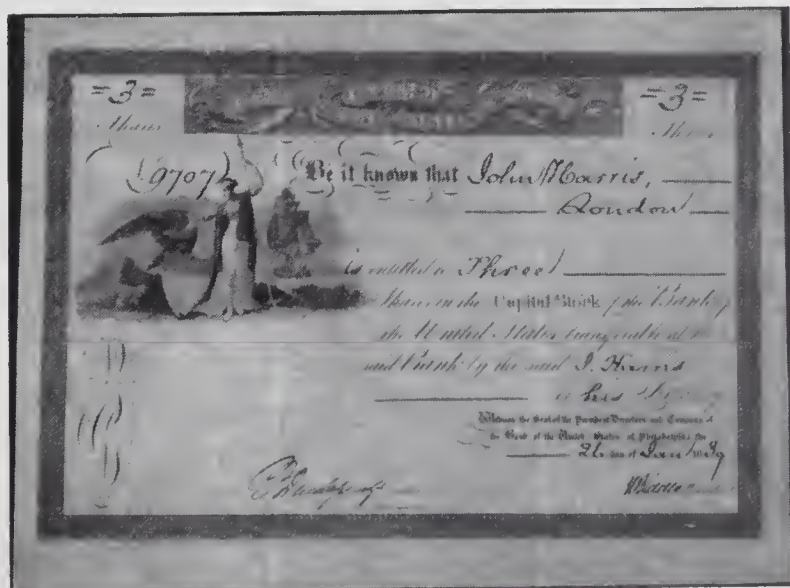 =3= =3=
Shares
9707 Be it known that John Harris,
London
is entitled to Three
Shares in the Capital Stock of the Bank of
the United States transferable at
said Bank by the said J. Harris
his
Witness the Seal of the President Directors and Company of
the Bank of the United States at Philadelphia this
26 day of Jan 1839